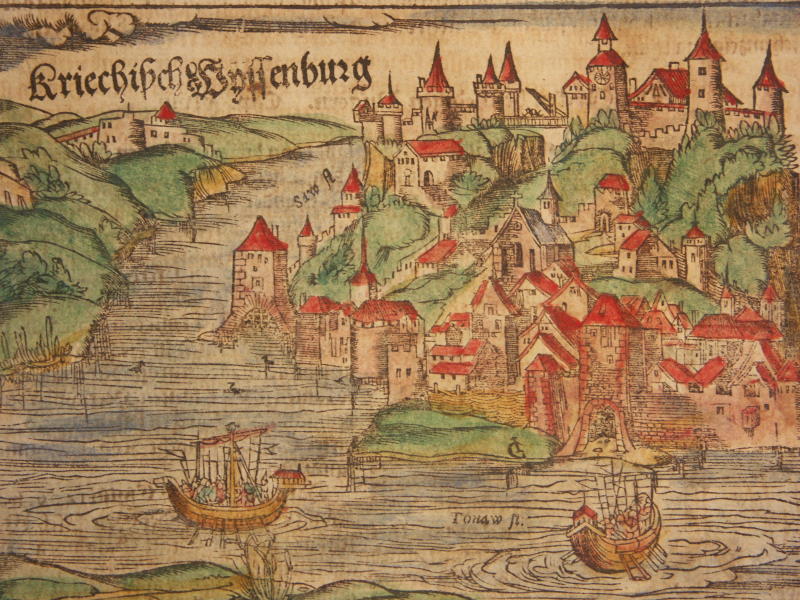 Kriechisch Wyssenburg
Saw fl.
Tonaw fl.
CS